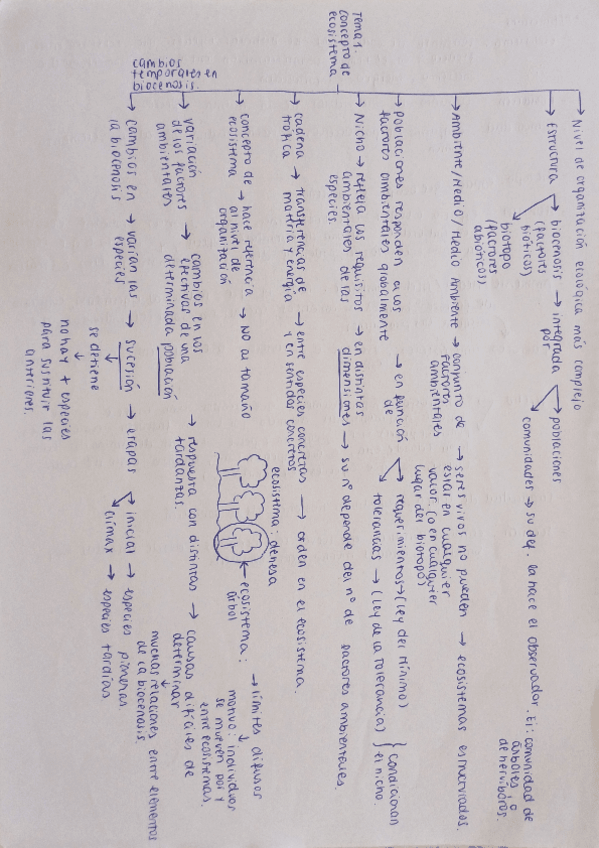 Tema 1.
concepto de
ecosistema
→ Nivel de organización ecológica más complejo
→ Estructura → biocenosis → integrada → poblaciones
(factores por
bióticos)
comunidades → su def. la hace el observador. Ej: comunidad de
árboles, o
de herviboros.
biotopo
(factores
abióticos)
→ Ambiente/Medio/Medio Ambiente → conjunto de → seres vivos no pueden → ecosistemas estructurados.
factores estar en cualquier
ambientales valor (o en cualquier
lugar del biotopo)
→ Poblaciones responden a los → en función → requerimientos → (Ley del Mínimo)
factores ambientales globalmente de → tolerancias → (Ley de la Tolerancia)
} condicionan
el nicho.
→ Nicho → refleja los requisitos → en distintas → su nº depende del nº de factores ambientales.
ambientales de las dimensiones
especies.
→ cadena → transferencias de → entre especies concretas → orden en el ecosistema.
trófica materia y energía y en sentidos concretos
→ concepto de → hace referencia → NO al tamaño
ecosistema al nivel de
organización
ecosistema: dehesa
ecosistema:
árbol
→ límites difusos
↓
motivo: individuos
se mueven por y
entre ecosistemas.
cambios
temporales en
biocenosis.
→ variación → cambios en los → respuesta con distintas → causas difíciles de
de los factores efectivos de una tardanzas. determinar
ambientales determinada población ↓
muchas relaciones entre elementos
de la biocenosis.
→ cambios en → varían las → sucesión → etapas → inicial → especies pioneras
la biocenosis especies → clímax → especies tardías
↓
se detiene
↓
no hay + especies
para sustituir las
anteriores.